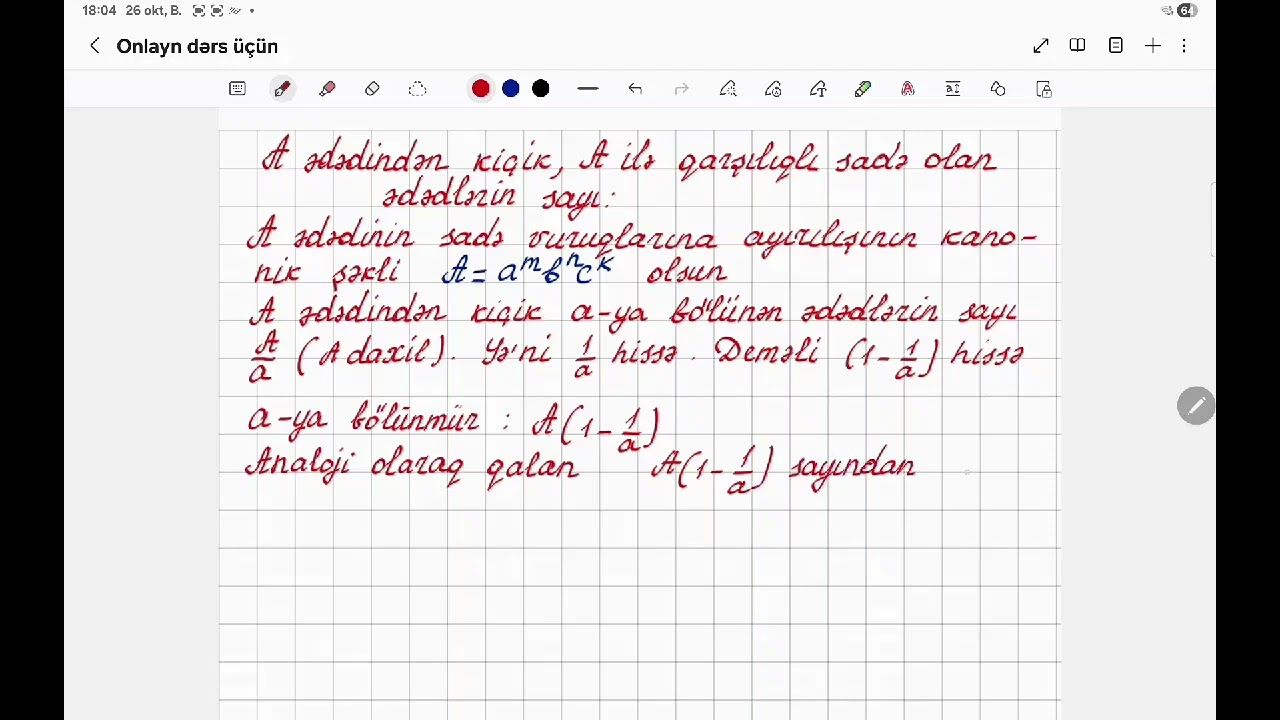 18:04 26 okt, B.
64
Onlayn dərs üçün
A ədədindən kiçik, A ilə qarşılıqlı sadə olan
ədədlərin sayı:
A ədədinin sadə vuruqlarına ayırılışının kano-
nik şəkli A = aᵐbⁿcᵏ olsun
A ədədindən kiçik a-ya bölünən ədədlərin sayı
A/a (A daxil). Yə'ni 1/a hissə. Deməli (1 - 1/a) hissə
a-ya bölünmür : A(1 - 1/a)
Analoji olaraq qalan A(1 - 1/a) sayından